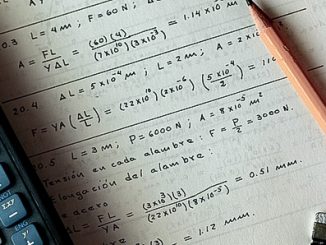 0.3 L = 4m ; F = 60 N ; ΔL
A = FL / YΔL = (60)(4) / (7x10¹⁰)(3x10⁻³) = 1.14x10⁻⁶ m²
20.4 ΔL = 5x10⁻⁴ m ; L = 2m ; A = 2x10
F = YA (ΔL/L) = (22x10¹⁰)(2x10⁻⁶) (5x10⁻⁴/2) = 110
0.5 L = 3m ; P = 6000 N ; A = 8x10⁻⁵ m²
Tensión en cada alambre: F = P/2 = 3000 N.
Elongación del alambre:
acero
ΔL = FL / YA = (3x10³)(3) / (22x10¹⁰)(8x10⁻⁵) = 0.51 mm.
= 1.12 mm.
ENG